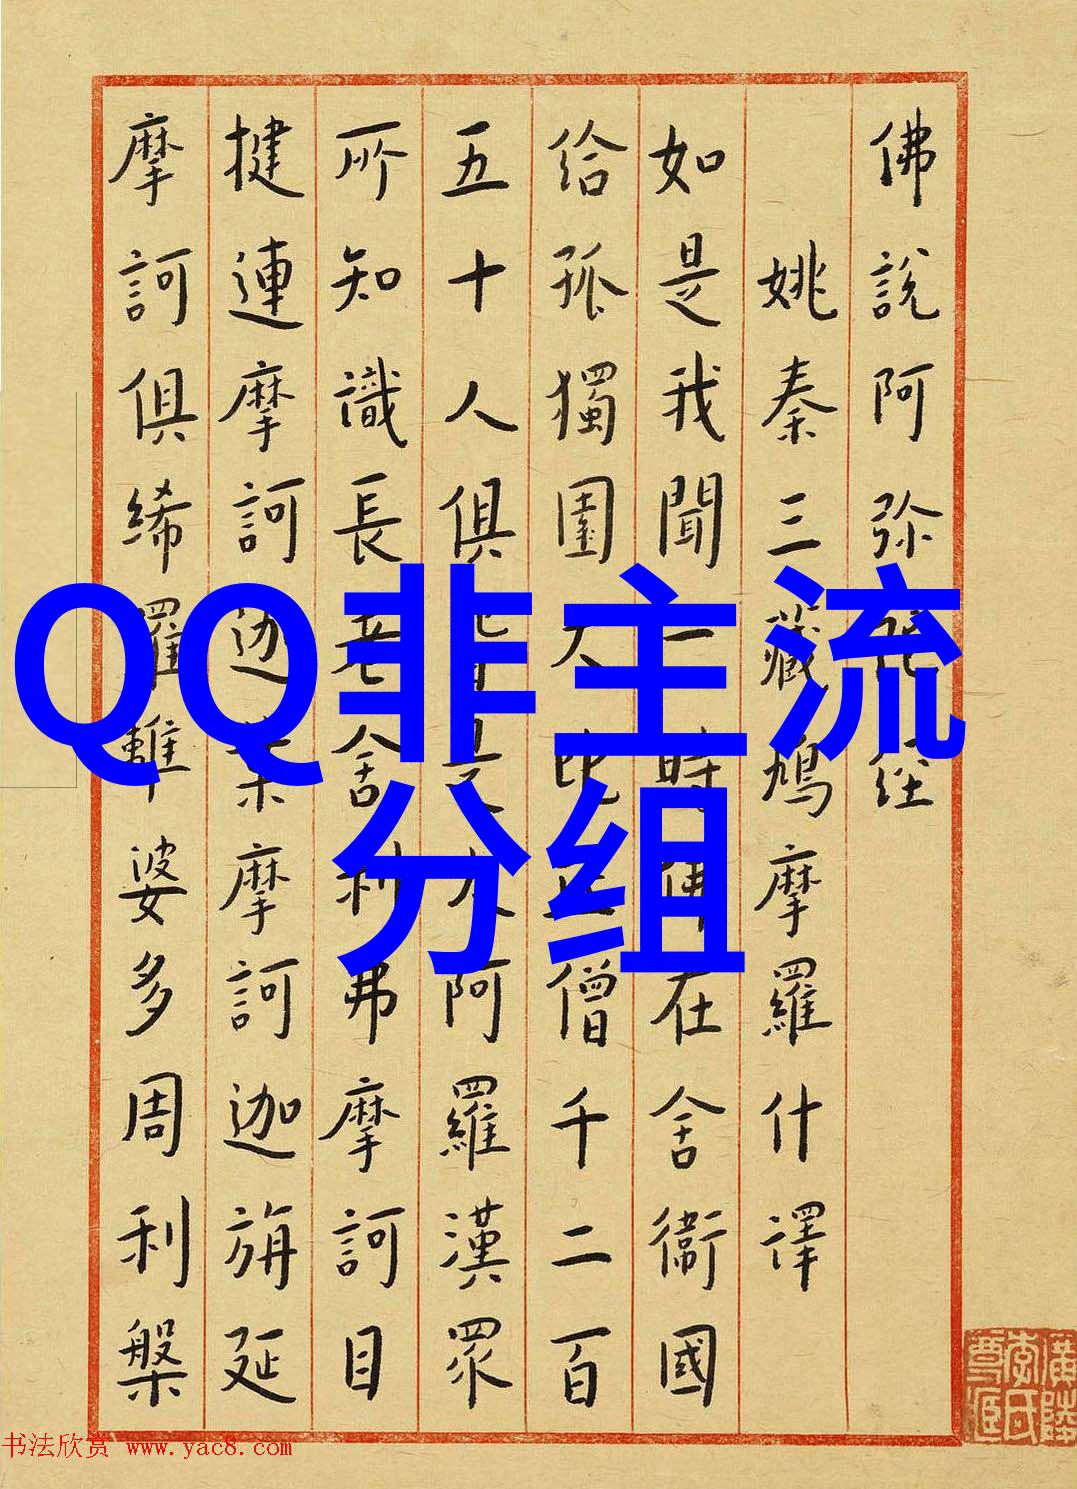 佛說阿弥陀経
姚秦三藏鳩摩羅什譯
如是我聞一時佛在舍衞國
給孤獨園大比丘僧千二百
五十人俱皆是大阿羅漢眾
所知識長老舍利弗摩訶目
揵連摩訶迦葉摩訶迦旃延
摩訶俱絺羅離婆多周利槃
QQ非主流
分组
书法欣赏 www.yac8.com